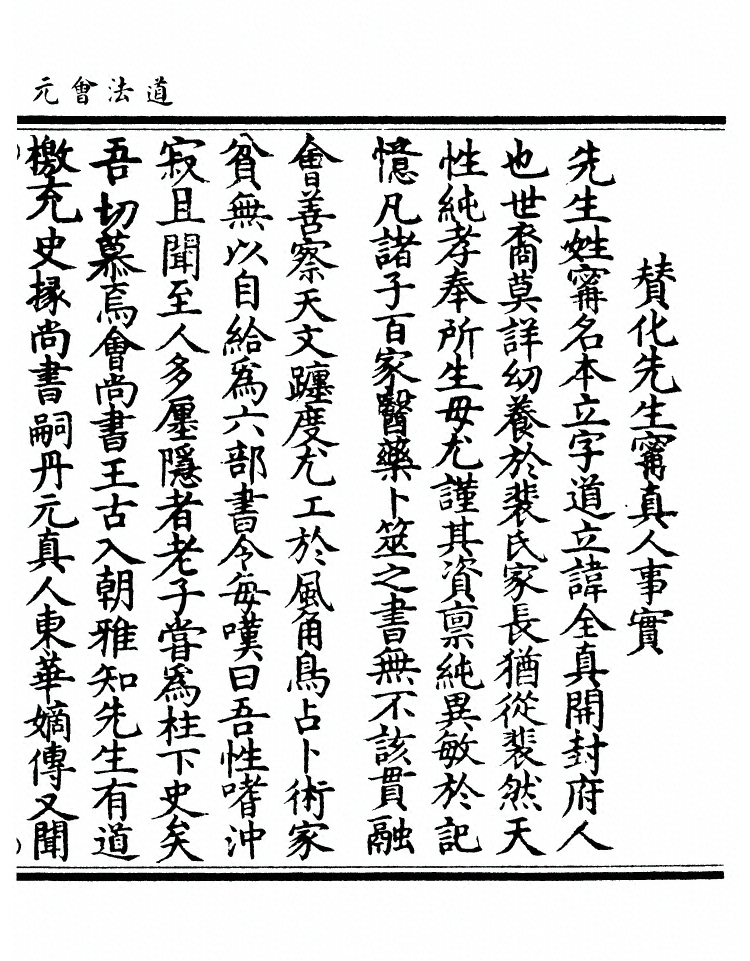 道法會元
賛化先生甯真人事實
先生姓甯名本立字道立諱全真開封府人
也世裔莫詳幼養於裴氏家長猶從裴然天
性純孝奉所生母尤謹其資禀純異敏於記
憶凡諸子百家醫藥卜筮之書無不該貫融
會善察天文躔度尤工於風角鳥占卜術家
貧無以自給為六部書令每嘆曰吾性嗜沖
寂且聞至人多𢊍隱者老子嘗為柱下史矣
吾切慕焉會尚書王古入朝雅知先生有道
檄充史掾尚書嗣丹元真人東華嫡傳又聞